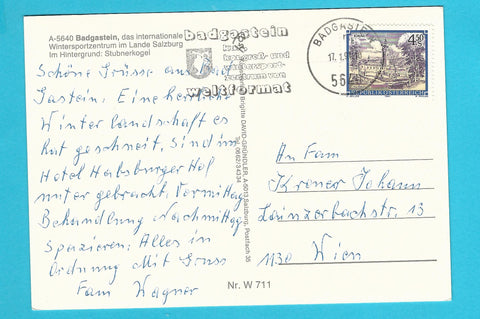 A-5640 Badgastein, das internationale
Wintersportzentrum im Lande Salzburg
Im Hintergrund: Stubnerkogel
badgastein
kur
kongreß- und
wintersport-
zentrum von
weltformat
BADGASTEIN
17.1.
5640
4.50
REPUBLIK ÖSTERREICH
Schöne Grüsse aus
Gastein. Eine herrliche
Winterlandschaft es
hat geschneit, Sind im
Hotel Habsburger Hof
unter gebracht. Vormittag
Behandlung Nachmittag
Spazieren; Alles in
Ordnung Mit Gruss
Fam Wagner
Brigitte DAVID-GRÜNDLER, A-5013 Salzburg, Postfach 35
An Fam
Kroner Johann
Lainzerbachstr. 13
1130 Wien
Nr. W 711